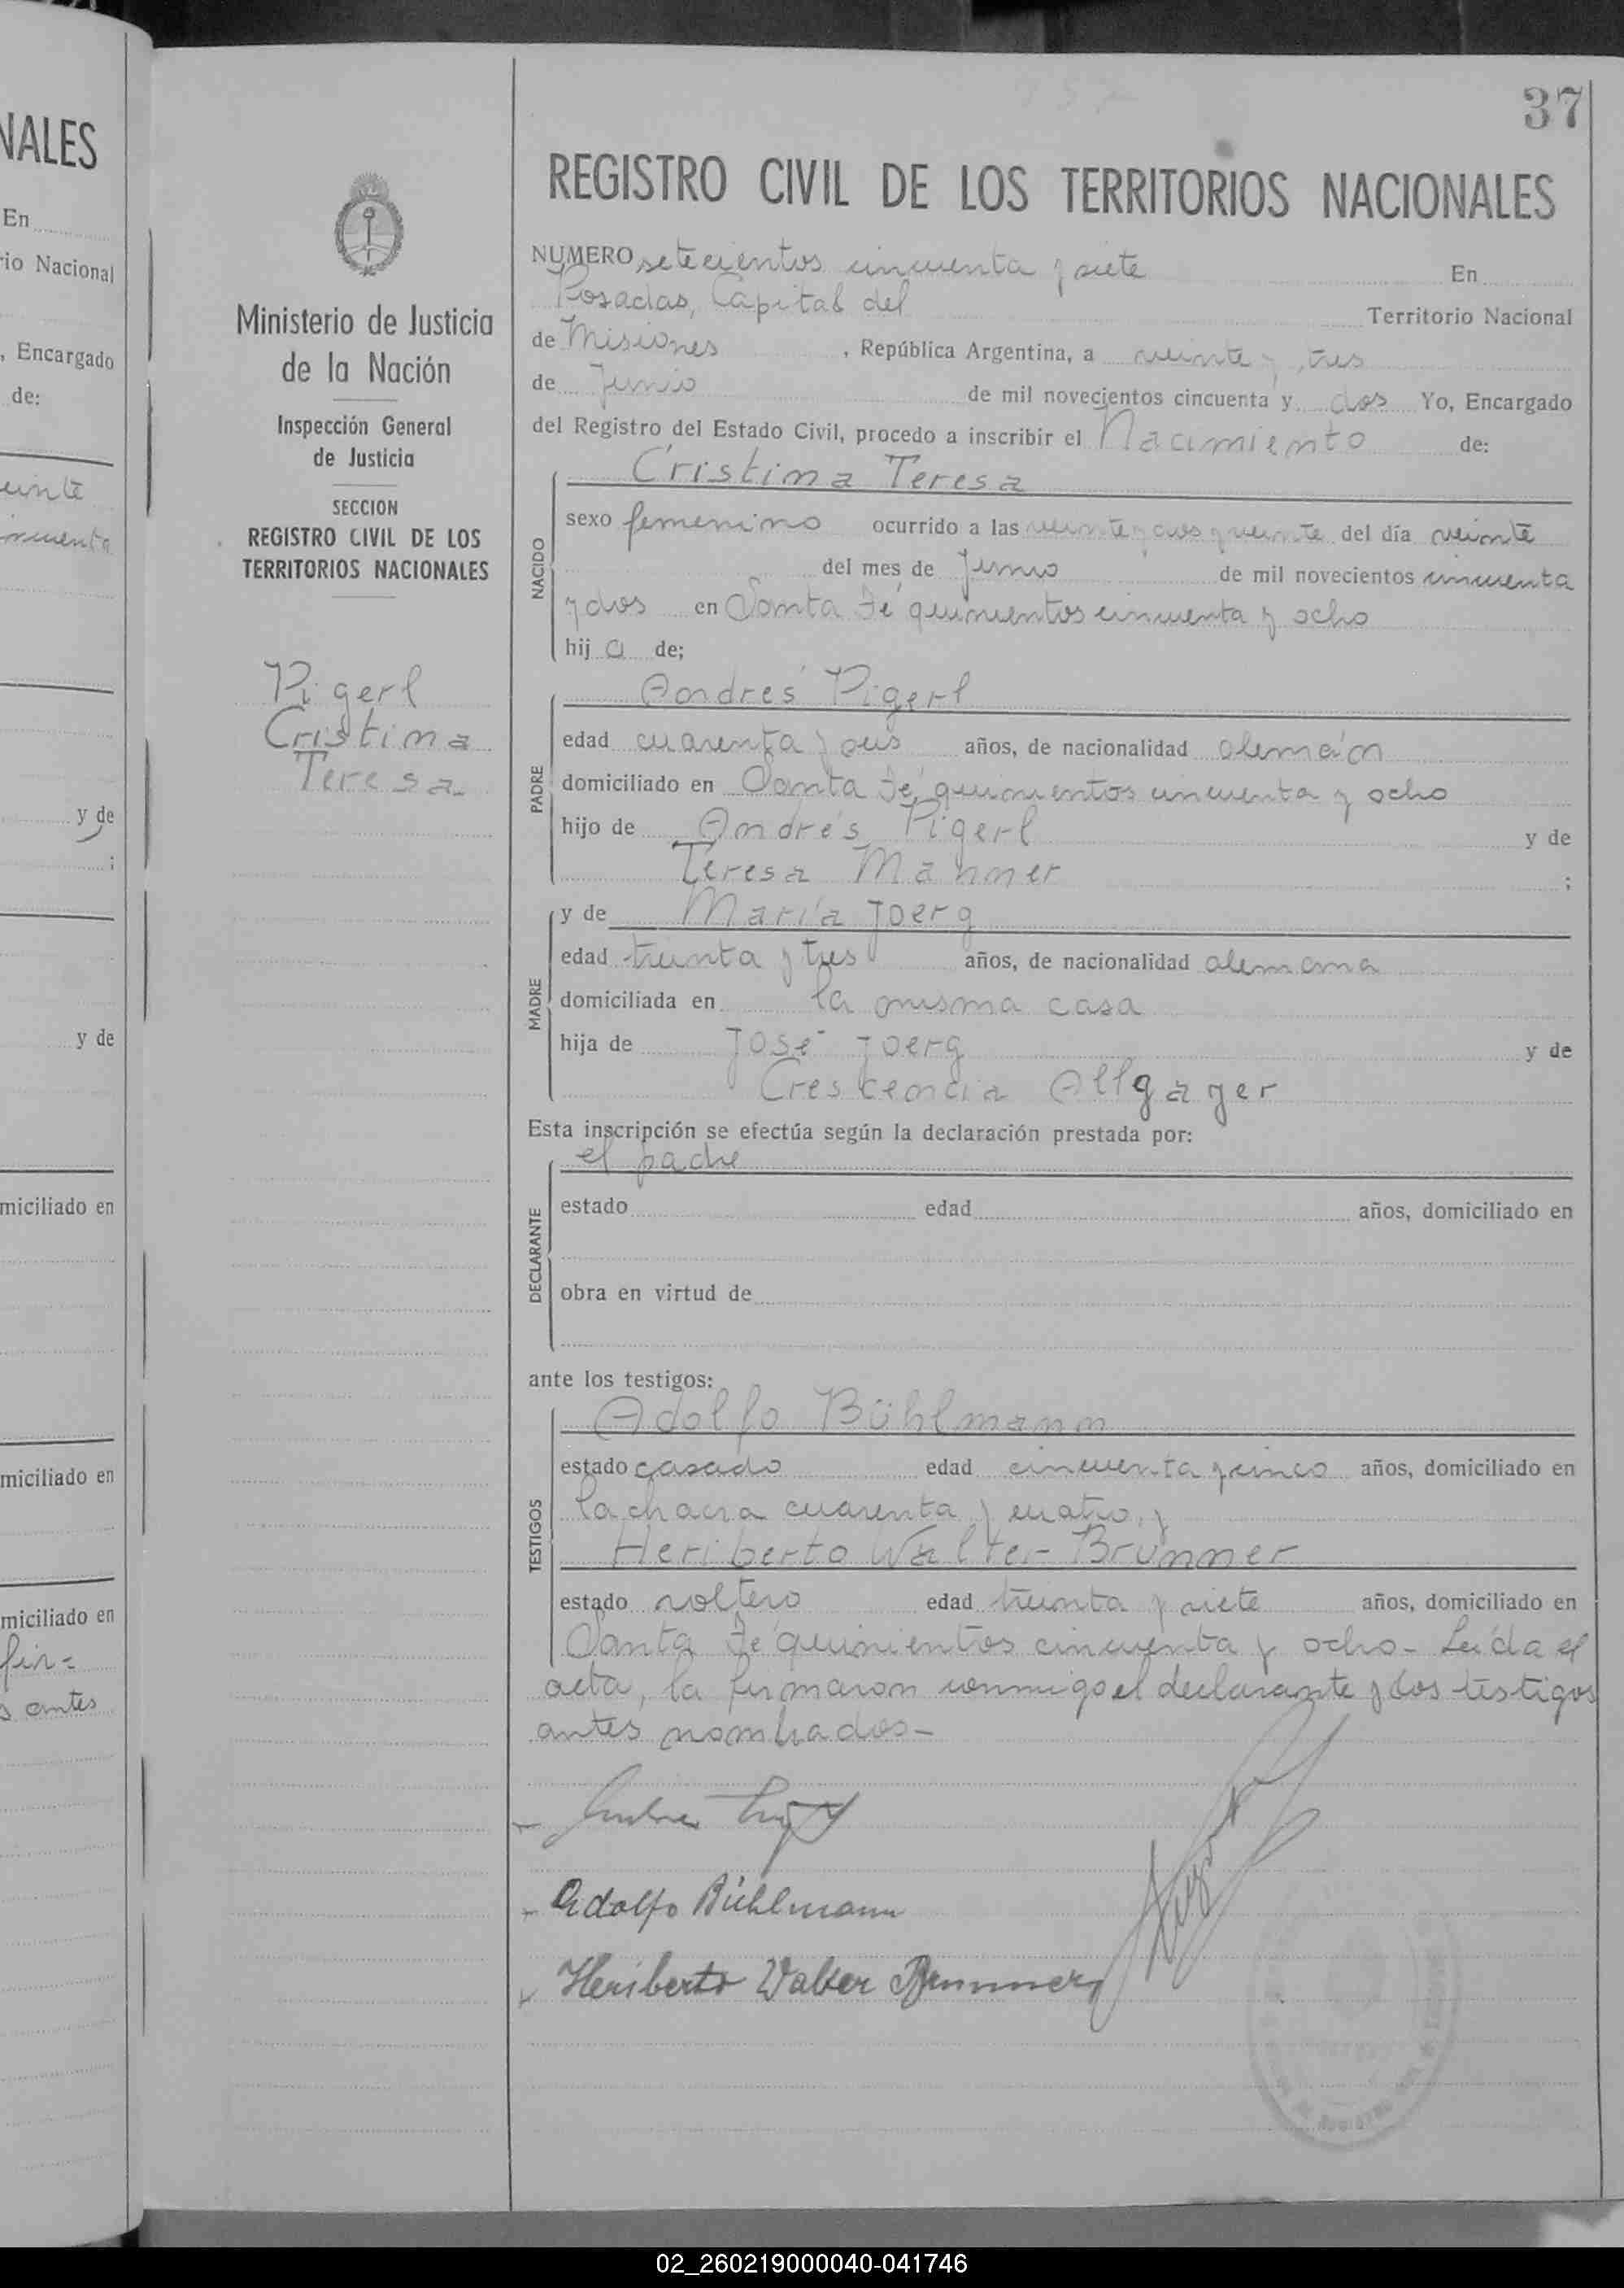 NALES
En
rio Nacional
, Encargado
de:
einte
incuenta
y de
;
y de
miciliado en
miciliado en
miciliado en
fir=
s antes
Ministerio de Justicia
de la Nación
Inspección General
de Justicia
SECCION
REGISTRO CIVIL DE LOS
TERRITORIOS NACIONALES
Pigerl
Cristina
Teresa-
37
REGISTRO CIVIL DE LOS TERRITORIOS NACIONALES
NUMERO setecientos cincuenta y siete En
Posadas, Capital del Territorio Nacional
de Misiones , República Argentina, a veinte y tres
de Junio de mil novecientos cincuenta y dos Yo, Encargado
del Registro del Estado Civil, procedo a inscribir el Nacimiento de:
NACIDO
Cristina Teresa
sexo femenino ocurrido a las veinte y dos y veinte del día veinte
del mes de Junio de mil novecientos cincuenta
y dos en Santa Fé quinientos cincuenta y ocho
hij a de;
PADRE
Andrés Pigerl
edad cuarenta y seis años, de nacionalidad alemán
domiciliado en Santa Fé quinientos cincuenta y ocho
hijo de Andrés Pigerl y de
Teresa Mahner ;
MADRE
y de María Joerg
edad treinta y tres años, de nacionalidad alemana
domiciliada en la misma casa
hija de José Joerg y de
Crescencia Allgayer
Esta inscripción se efectúa según la declaración prestada por:
DECLARANTE
el padre
estado edad años, domiciliado en
obra en virtud de
ante los testigos:
TESTIGOS
Adolfo Bühlmann
estado casado edad cincuenta y cinco años, domiciliado en
la chacra cuarenta y cuatro, y
Heriberto Walter Brunner
estado soltero edad treinta y siete años, domiciliado en
Santa Fé quinientos cincuenta y ocho- Leída el
acta, la firmaron conmigo el declarante y los testigos
antes nombrados-
Adolfo Bühlmann
Heriberto Walter Brunner
02_260219000040-041746